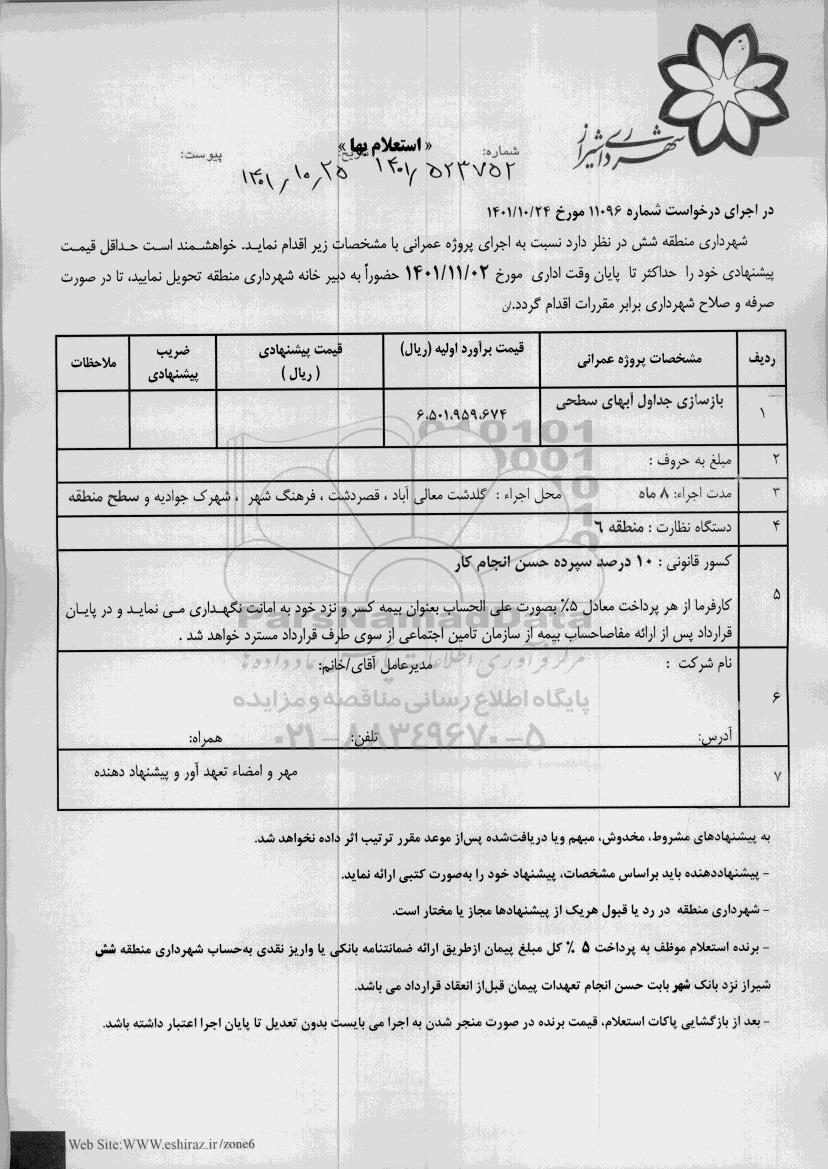 شهرداری شیراز
« استعلام بها »
شماره: ۱۴۰۱/۵۲۳۷۵۲
تاریخ: ۱۴۰۱/۱۰/۲۵
پیوست:
در اجرای درخواست شماره ۱۱۰۹۶ مورخ ۱۴۰۱/۱۰/۲۴
شهرداری منطقه شش در نظر دارد نسبت به اجرای پروژه عمرانی با مشخصات زیر اقدام نماید. خواهشمند است حداقل قیمت
پیشنهادی خود را حداکثر تا پایان وقت اداری مورخ ۱۴۰۱/۱۱/۰۲ حضوراً به دبیر خانه شهرداری منطقه تحویل نمایید، تا در صورت
صرفه و صلاح شهرداری برابر مقررات اقدام گردد.
ردیف مشخصات پروژه عمرانی قیمت برآورد اولیه (ریال) قیمت پیشنهادی ( ریال ) ضریب پیشنهادی ملاحظات
۱ بازسازی جداول آبهای سطحی ۶،۵۰۱،۹۵۹،۶۷۴
۲ مبلغ به حروف :
۳ مدت اجراء: ۸ ماه محل اجراء : گلدشت معالی آباد ، قصردشت ، فرهنگ شهر ، شهرک جوادیه و سطح منطقه
۴ دستگاه نظارت : منطقه ۶
۵ کسور قانونی : ۱۰ درصد سپرده حسن انجام کار
کارفرما از هر پرداخت معادل ۵٪ بصورت علی الحساب بعنوان بیمه کسر و نزد خود به امانت نگهداری می نماید و در پایان
قرارداد پس از ارائه مفاصاحساب بیمه از سازمان تامین اجتماعی از سوی طرف قرارداد مسترد خواهد شد .
۶ نام شرکت : مدیرعامل آقای/خانم:
آدرس: تلفن: همراه:
۷ مهر و امضاء تعهد آور و پیشنهاد دهنده
ParsNamadData
پایگاه اطلاع رسانی مناقصه و مزایده
۰۲۱-۸۸۳۴۹۶۷۰-۵
به پیشنهادهای مشروط، مخدوش، مبهم ویا دریافت‌شده پس‌از موعد مقرر ترتیب اثر داده نخواهد شد.
- پیشنهاددهنده باید براساس مشخصات، پیشنهاد خود را به‌صورت کتبی ارائه نماید.
- شهرداری منطقه در رد یا قبول هریک از پیشنهادها مجاز یا مختار است.
- برنده استعلام موظف به پرداخت ۵ ٪ کل مبلغ پیمان ازطریق ارائه ضمانتنامه بانکی یا واریز نقدی به‌حساب شهرداری منطقه شش
شیراز نزد بانک شهر بابت حسن انجام تعهدات پیمان قبل‌از انعقاد قرارداد می باشد.
- بعد از بازگشایی پاکات استعلام، قیمت برنده در صورت منجر شدن به اجرا می بایست بدون تعدیل تا پایان اجرا اعتبار داشته باشد.
Web Site:WWW.eshiraz.ir/zone6